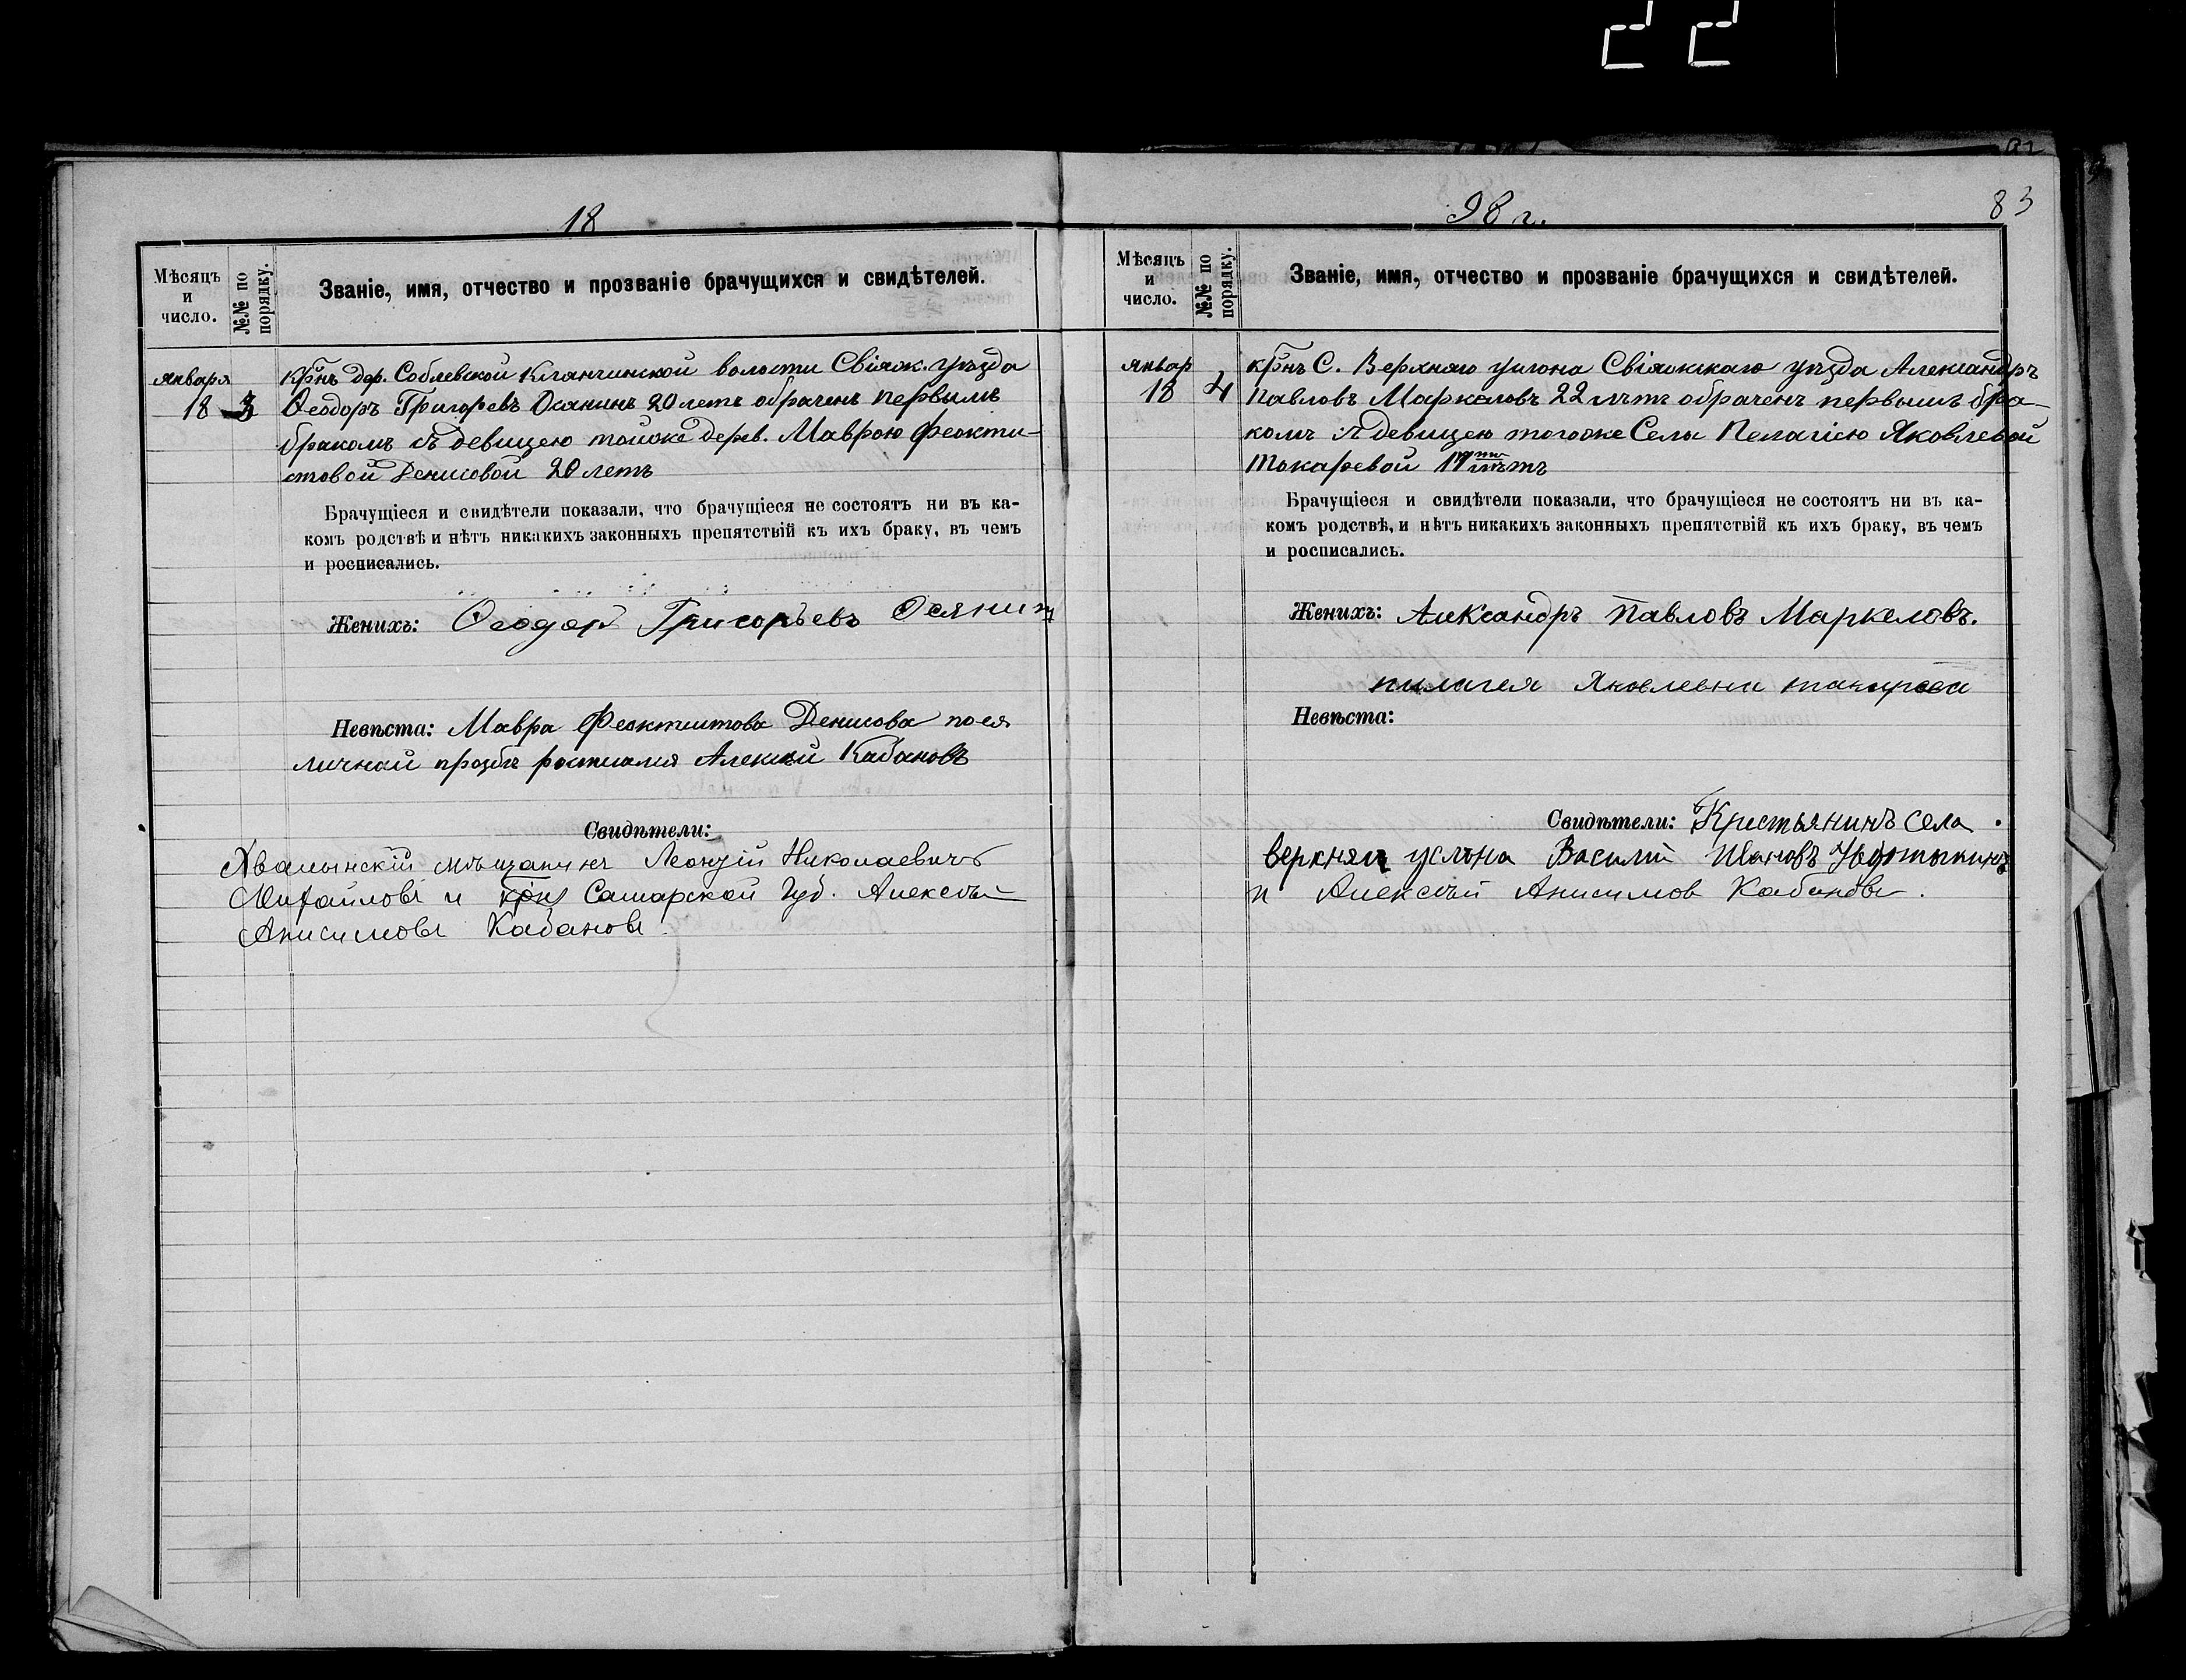 22
18
Мѣсяцъ и число.
№№ по порядку.
Званіе, имя, отчество и прозваніе брачущихся и свидѣтелей.
января 18
3
крнъ дер. Соблевской Клянчинской волости Свіяж. уѣзда
Ѳеодоръ Григоревъ Осянинъ 20 летъ обраченъ первымъ
бракомъ съ девицею тойже дерев. Маврою Феокти-
стовой Денисовой 20 летъ
Брачущіеся и свидѣтели показали, что брачущіеся не состоятъ ни въ ка-
комъ родствѣ и нѣтъ никакихъ законныхъ препятствій къ ихъ браку, въ чемъ
и росписались.
Женихъ: Ѳеодор Григорьевъ Осянинъ
Невѣста: Мавра Феоктистова Денисова по ея
личной прозбе Алексей Кабановъ
Свидѣтели:
Хвалынскій мѣщанинъ Леонтій Николаевичъ
Михайловъ и крнъ Самарской Губ. Алексѣй
Анисимовъ Кабановъ
98 г.
83
Мѣсяцъ и число.
№№ по порядку.
Званіе, имя, отчество и прозваніе брачущихся и свидѣтелей.
январ 18
4
крнъ С. Верхняго услона Свіяжскаго уѣзда Александръ
Павловъ Маркеловъ 22 лѣтъ обраченъ первымъ бра-
комъ съ девицею тогоже Села Пелагіею Яковлевой
Токаревой лѣтъ
Брачущіеся и свидѣтели показали, что брачущіеся не состоятъ ни въ ка-
комъ родствѣ, и нѣтъ никакихъ законныхъ препятствій къ ихъ браку, въ чемъ
и росписались.
Женихъ: Александръ Павловъ Маркеловъ.
пилагея Яковлевна токарева
Невѣста:
Свидѣтели: Крестьянинъ села
верхняго услона Василій Ивановъ
и Алексѣй Анисимов Кабановъ.